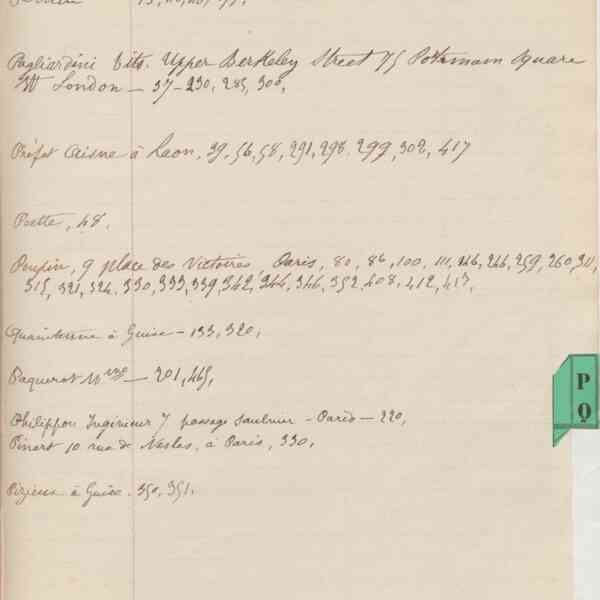 Pagliardini Tito. Upper Berkeley Street 75 Portmann Square
W London — 37-230, 285, 300,
Préfet Aisne à Laon, 39, 56, 58, 291, 298, 299, 302, 417
Pette, 48.
Poupin, 9 place des Victoires, Paris, 80, 86, 100, 111, 246, 259, 260, 311,
315, 321, 324, 330, 333, 339, 342, 344, 346, 352, 408, 412, 417,
à Guise - 133, 320,
Paquerot — 201, 465,
Philippon Ingénieur 7 passage Saulnier - Paris — 220,
Pinart 10 rue de Nesles, à Paris, 330,
à Guise. 350, 351,
P
Q